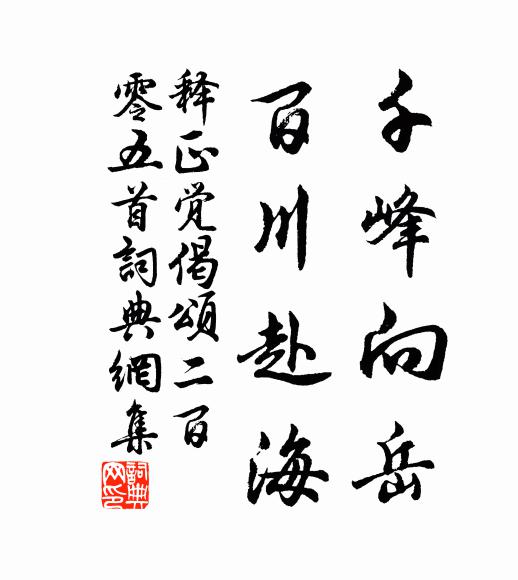 千峰向岳
百川赴海
释正觉偈頌二百
零五首詞典網集